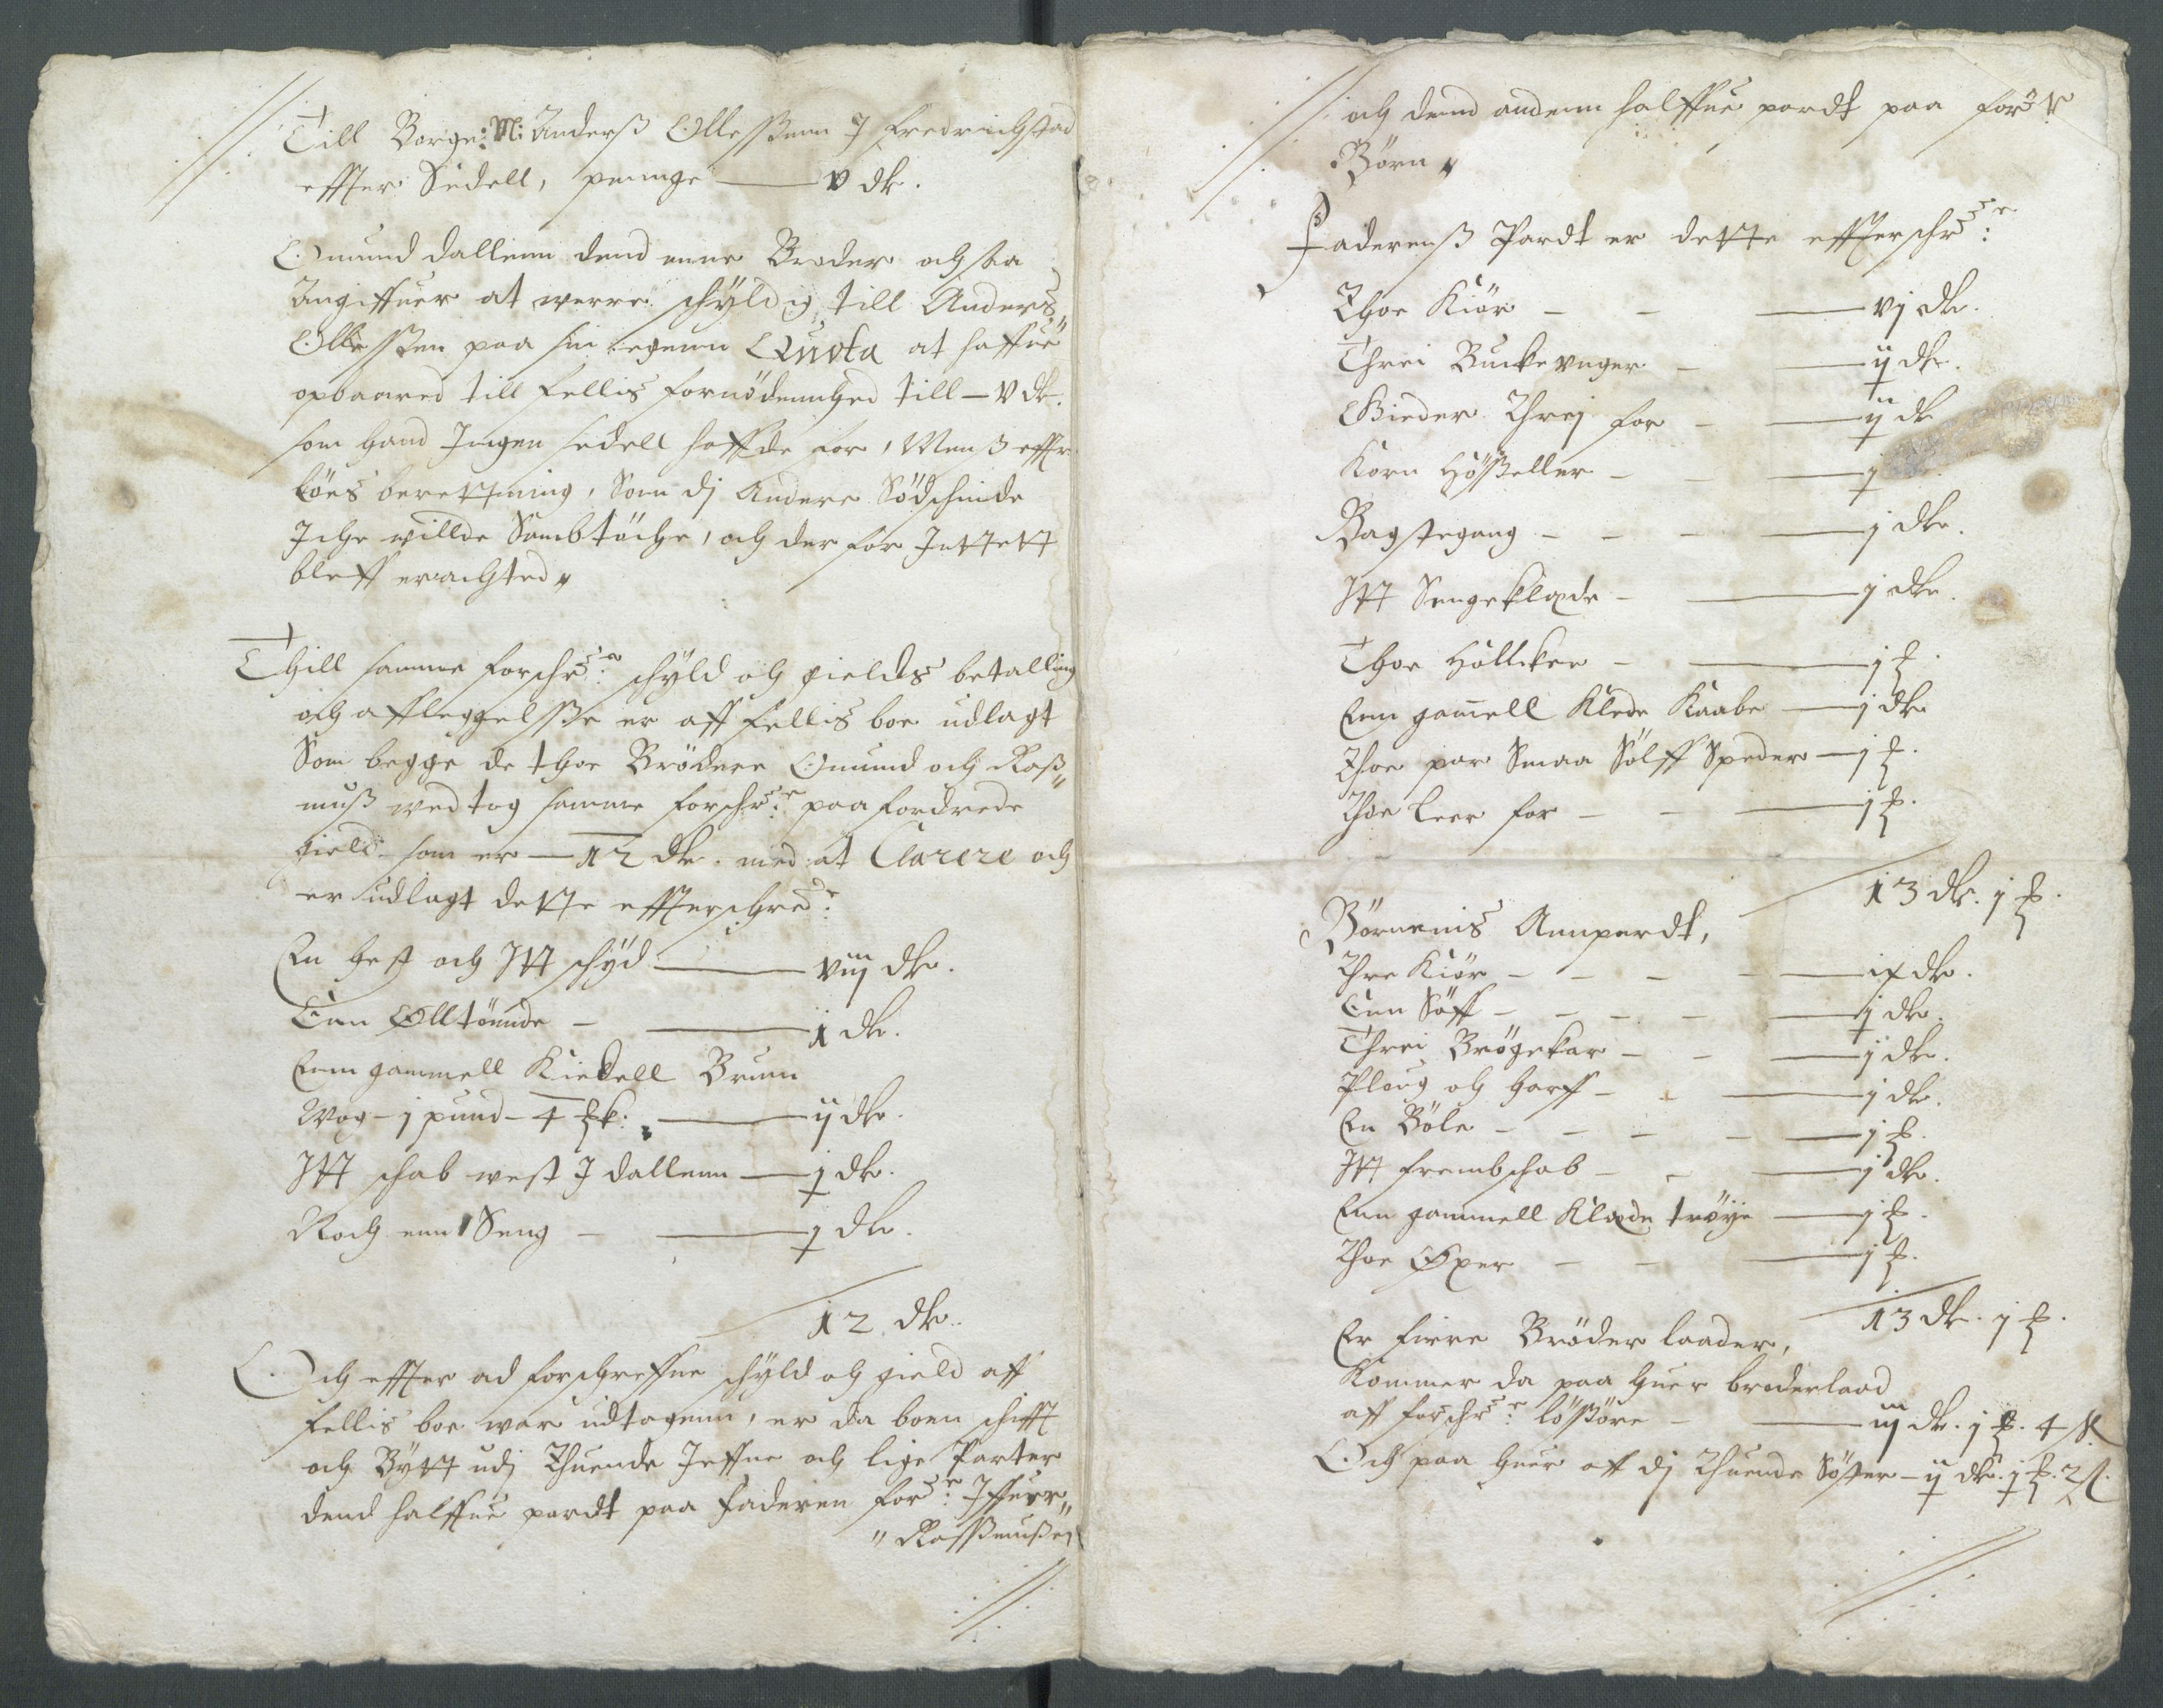 Till Borge: M: Anderß Ollessenn I Fredrichstad
effter Sedell, peninge — v dlr.
Omund Dallenn dend enne Broder och saa
Angiffuer at werre schyldig till Anders
Ollessen paa sin egenn Quota at haffue
opbaared till Fellis fornödennhed till — v dlr.
som hand Ingen sedell haffde for, Menß effter
löes berettning, Som dj Andere Södschinde
Iche willde Sambtöche, och der for Intett
bleff erachted,
Thill samme forschr:ne schyld och gields betalling
och affleggelsse er aff Fellis boe udlagt
Som begge de thoe Brödere Omund och Raß„
muß wed tog samme forschr:ne paa fordrede
gield som er — 12 dlr. med at Clarere och
er udlagt dette effterschreffne:
En hest och Itt schyd — viij dlr.
Enn Ölltönnde — 1 dlr.
Enn gammell Kiedell Brun
Wog – j pund – 4 — ij dlr.
Itt schab west I Dallenn — j dlr.
Noch enn Seng — j dlr.
12 dlr.
Och effter ad forschreffne schyld och gield aff
Fellis boe war udtagenn, er da boen schifft
och Bytt udj Thuende Jeffne och lige Parter
dend halffue pardt paa Faderen for:ne Iffuer
„Rassmußen
och dend andenn halffue pardt paa for:ne
Börn,
Faderenß Pardt er dette effterschr:ne
Thoe Kiör — vj dlr.
Threi Buckevnger — ij dlr.
Gieder Threj for — ij dlr
Korn Hösseller — j
Bagstegang — j dlr.
Itt Sengeklæde — j dlr.
Thoe Höllcker — j ₰.
Enn gamell Klede Kaabe — j dlr
Thoe par Smaa Sölff Speder — j ₰.
Thoe Leer for — j ₰.
13 dlr. j ₰.
Börnenis Annpardt,
Thre Kiör — ix dlr.
Enn Söff — j dlr.
Threi Brögekar — j dlr.
Ploug och Harff — j dlr.
En Böle — j ₰.
Itt frembschab — j dlr.
Enn gammell Klæde tröye — j ₰.
Thoe Öxer — j ₰.
13 dlr. j ₰.
Er fiere Bröder laader,
Kommer da paa huer broderlaad
aff forschr:ne lössöre — iij dlr. j ₰. 4 ß
Och paa huer aff dj Thuende Söster — ij dlr. j ₰. 2 ß.